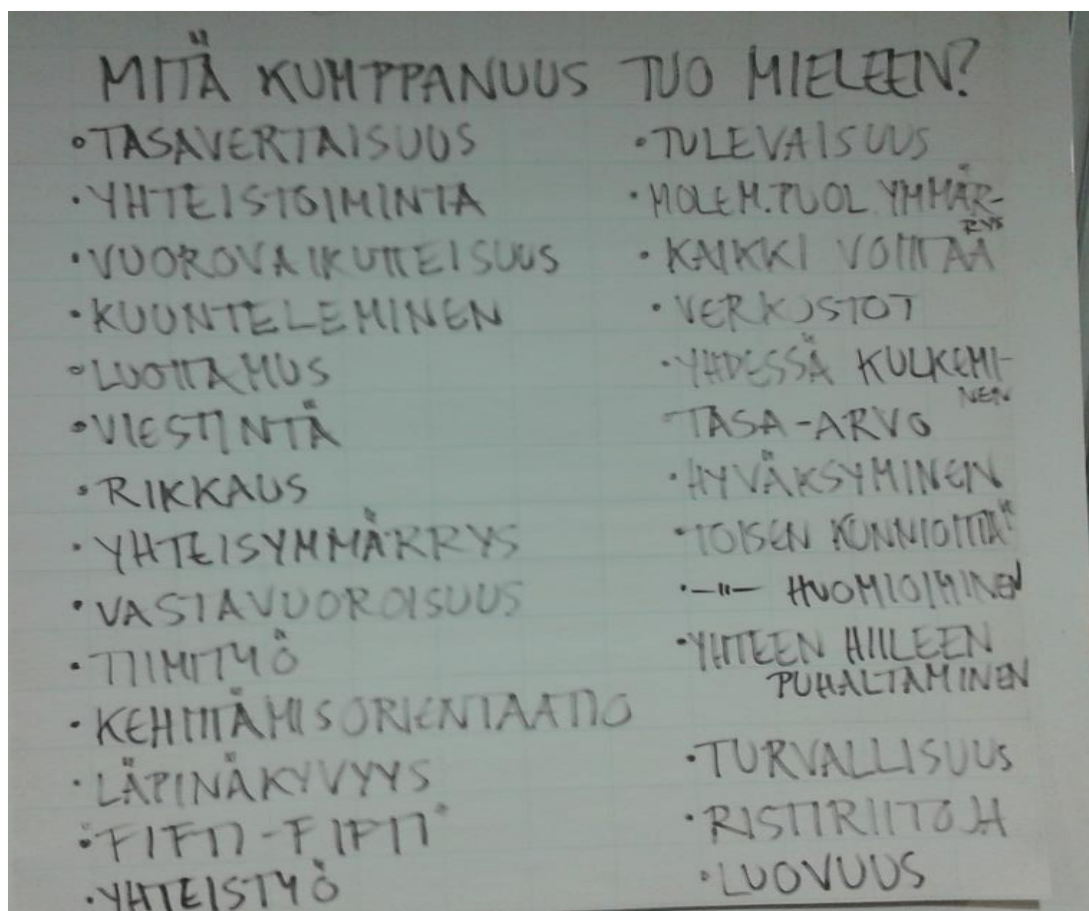 MITÄ KUMPPANUUS TUO MIELEEN?
• TASAVERTAISUUS
• YHTEISTOIMINTA
• VUOROVAIKUTTEISUUS
• KUUNTELEMINEN
• LUOTTAMUS
• VIESTINTÄ
• RIKKAUS
• YHTEISYMMÄRRYS
• VASTAVUOROISUUS
• TIIMITYÖ
• KEHITTÄMISORIENTAATIO
• LÄPINÄKYVYYS
• "FIFTI-FIFTI"
• YHTEISTYÖ
• TULEVAISUUS
• MOLEM.PUOL. YMMÄR-
RYS
• KAIKKI VOITTAA
• VERKOSTOT
• YHDESSÄ KULKEMI-
NEN
TASA-ARVO
• HYVÄKSYMINEN
• TOISEN KUNNIOITTA
• —"— HUOMIOIMINEN
• YHTEEN HIILEEN
PUHALTAMINEN
• TURVALLISUUS
• RISTIRIITOJA
• LUOVUUS